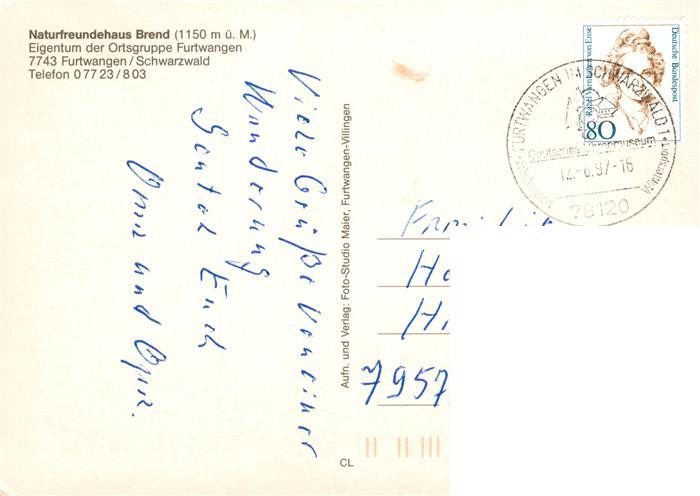 Naturfreundehaus Brend (1150 m ü. M.)
Eigentum der Ortsgruppe Furtwangen
7743 Furtwangen / Schwarzwald
Telefon 0 77 23 / 8 03
Viele Grüße von einer
Wanderung
Sendet Euch
Oma und Opa.
Aufn. und Verlag: Foto-Studio Maier, Furtwangen-Villingen
CL
Deutsche Bundespost
Rahel Varnhagen von Ense
80
FURTWANGEN IM SCHWARZWALD 1
Deutsches Uhrenmuseum
12.-6.97-16
Wintersport
78120
7957